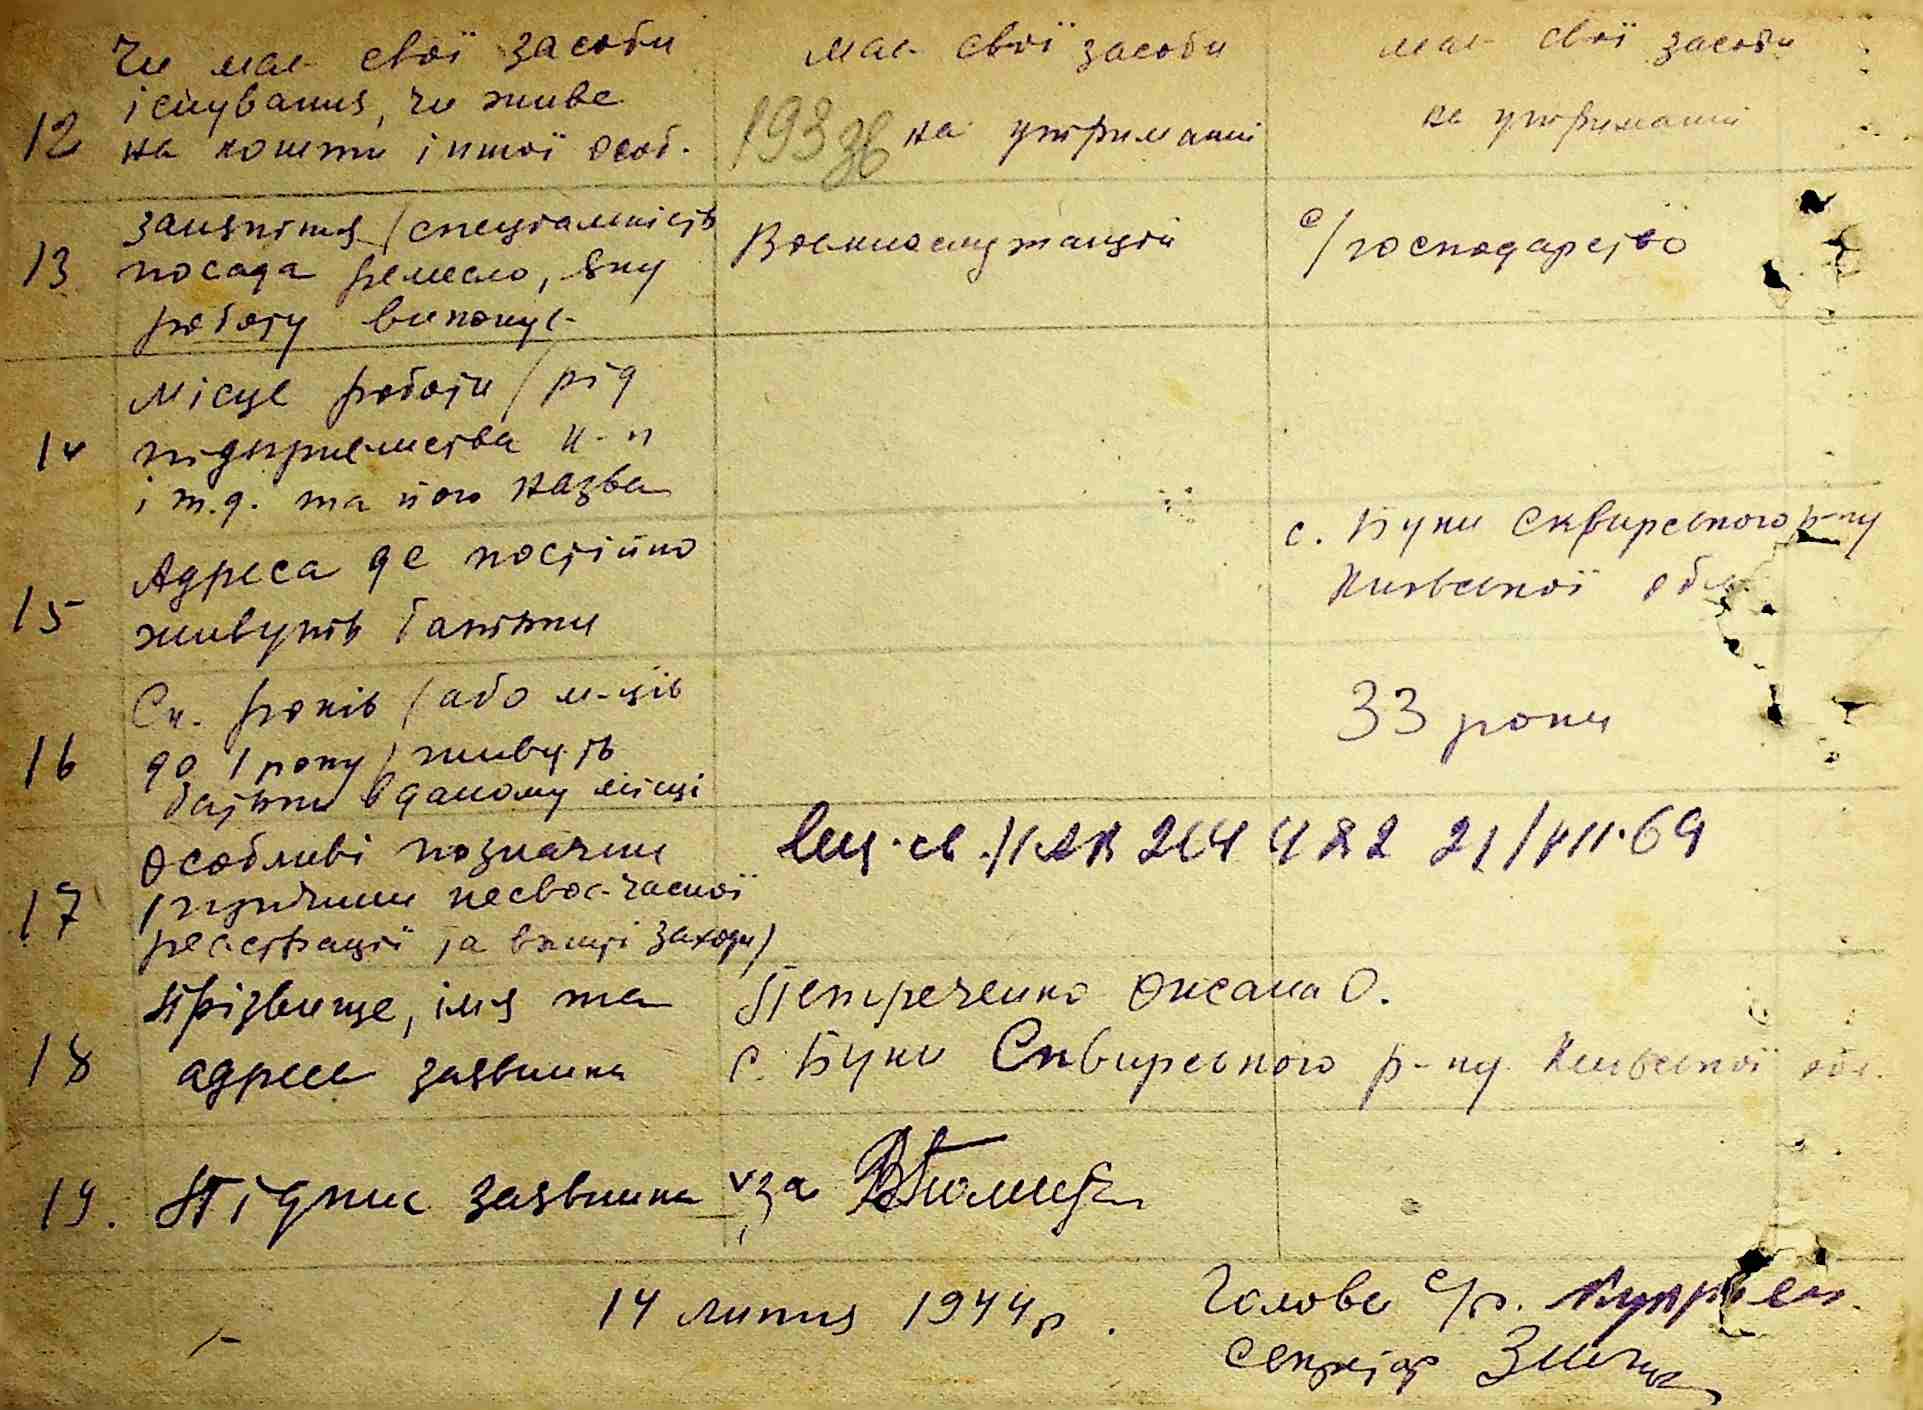 Чи має свої засоби
існування, чи живе
12 на кошти іншої особ.
має свої засоби
на утриманні
має свої засоби
на утриманні
заняття / спеціальність
13 посада ремесло, яку
роботу виконує
Военнослужащий
с/господарство
Місце роботи / рід
14 підприємства к-п
і т.д. та його назва
Адреса де постійно
15 живуть батьки
с. Буки Сквирського р-ну
Київської обл.
Ск. років / або м-ців
16 до 1 року / живуть
батьки в даному місці
33 роки
Особливі позначки
17 / причини несвоє-часної
реєстрації та вжиті заходи /
21/VII.69
Прізвище, імя та
18 адреса заявника
Петреченко Оксана О.
с. Буки Сквирського р-ну Київської обл.
19. Підпис заявника за
14 липня 1944 р.
Голова с/р.
Секретар